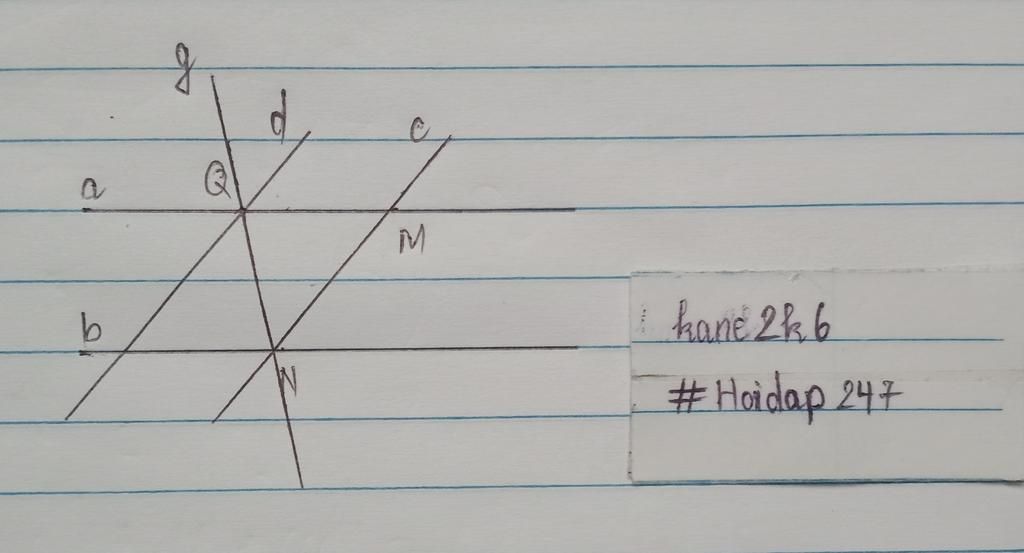 g
d
c
Q
a
M
b
N
kane2k6
#Hoidap247